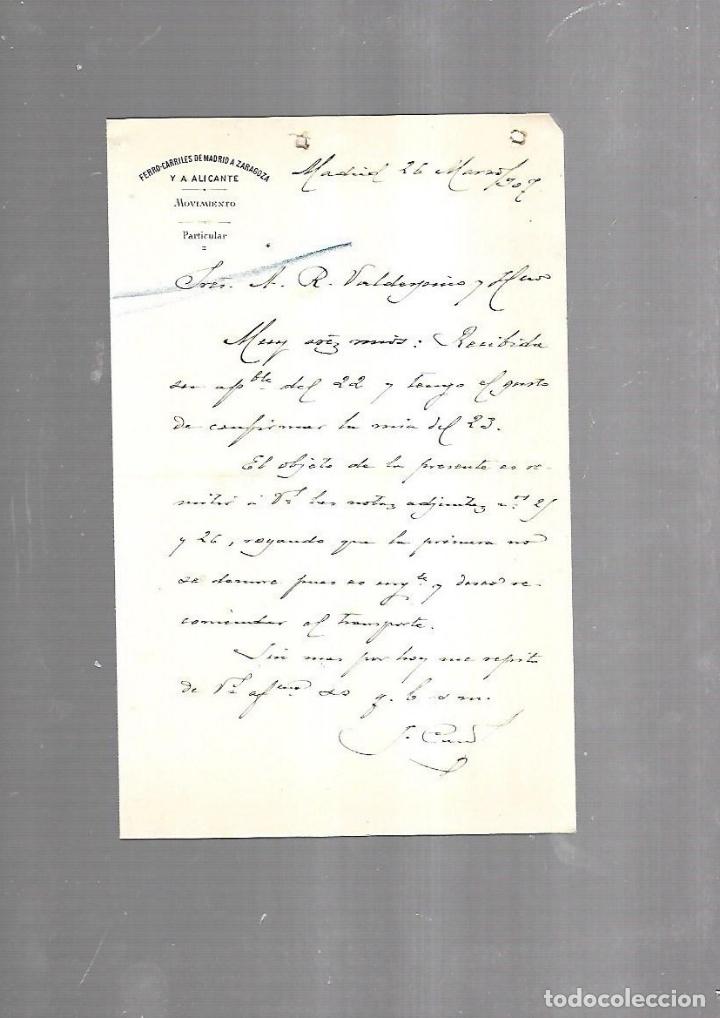 FERRO-CARRILES DE MADRID A ZARAGOZA
Y A ALICANTE
MOVIMIENTO
Particular
Madrid 26 Marzo/907
Sres. A. R. Valdespino y Hno
Muy sres mios: Recibida
su apble del 22 y tengo el gusto
de confirmar la mia del 23.
El objeto de la presente es re-
mitir á Vs las notas adjuntas nos 25
y 26, rogando que la primera no
se demore pues es urgte y deseo re-
comendar el transporte.
Sin mas por hoy me repito
de Vs afmo ss q. b s m.
todocoleccion
todocoleccion.net